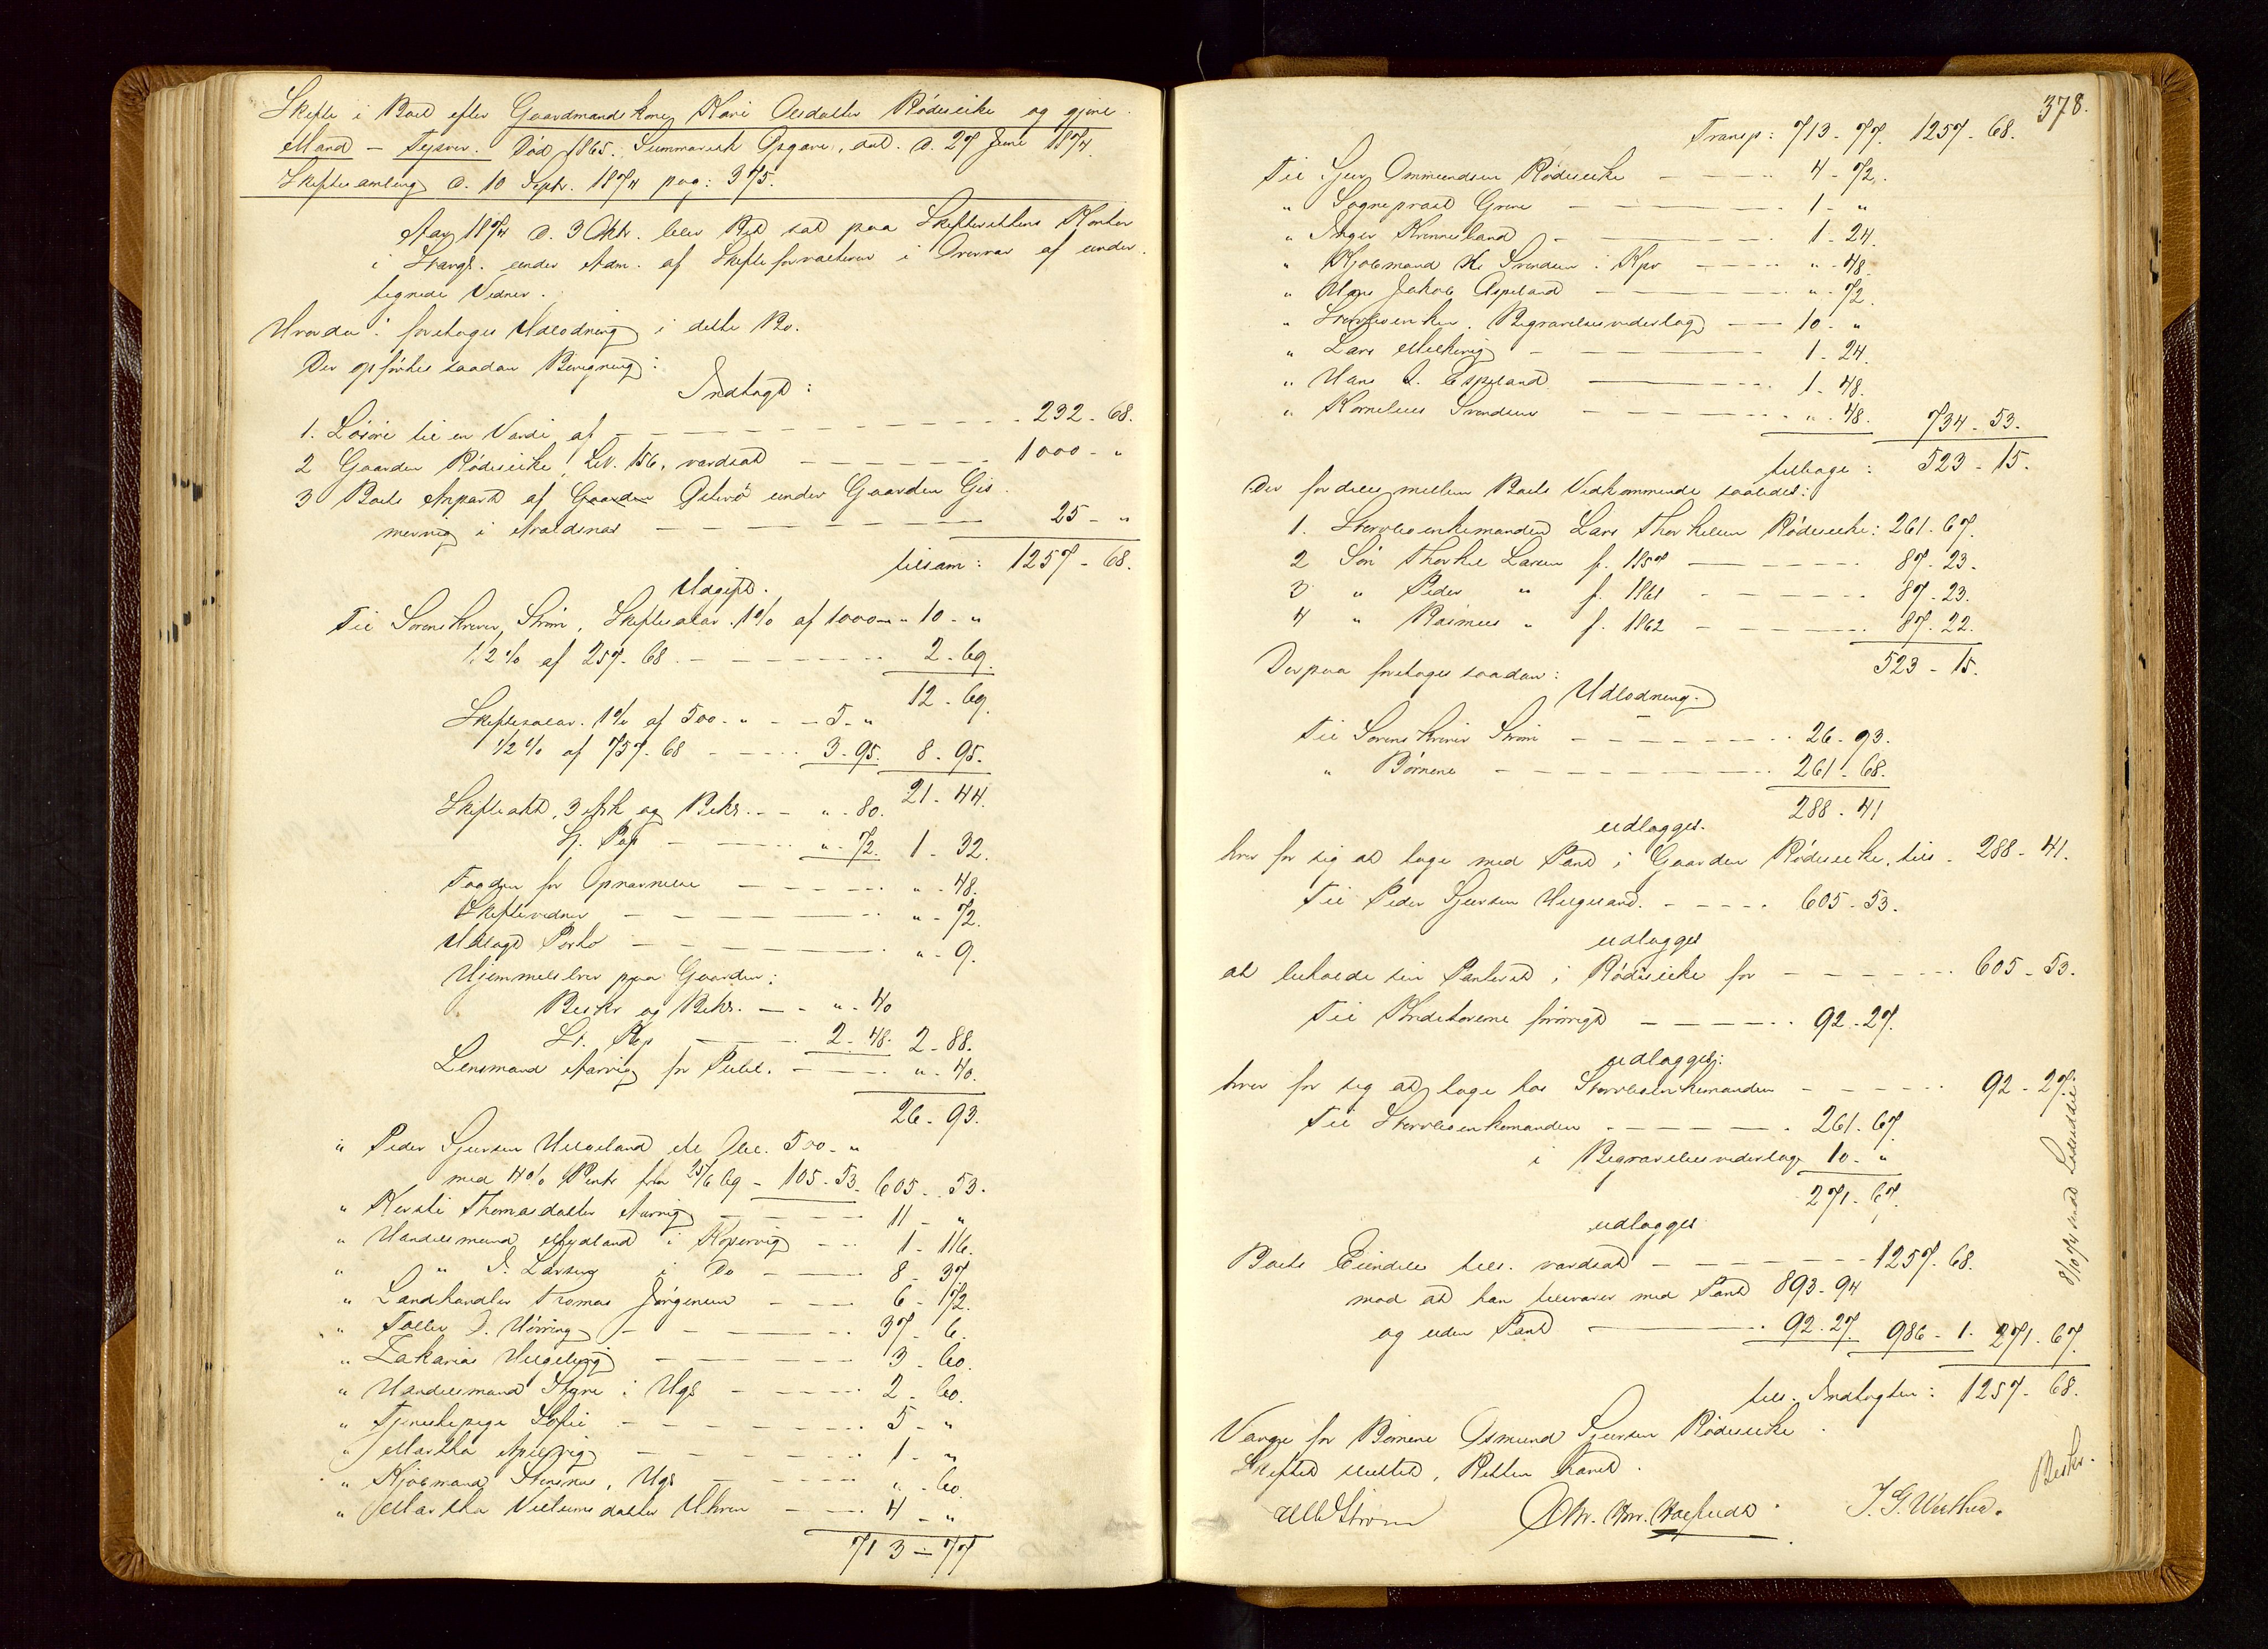 Skifte i Boet efter Gaardmandskone Kari Olsdatter Rødseike og gjenl.
Mand - Tysver. Død 1865. Summarisk Opgave, dat. d. 27 Juni 1874.
Skiftesamling d. 10 Septr. 1874 pag: 375.
Aar 1874 d. 3 Oktr. blev Ret sat paa Skifterettens Kontor
i Stavgr. under Adm. af Skifteforvalteren i Overvær af under-
tegnede Vidner.
Hvorda: foretages Udlodning i dette Bo.
Der opførtes saadan Beregning:
Indtægt:
1. Løsøre til en Værdi af - 232 - 68.
2 Gaarden Rødseike, LN. 156, værdsat - 1000 - "
3 Boets Anpart af Gaarden Østrø under Gaarden Gis-
mervig i Avaldsnæs - 25 - "
tilsam: 1257 - 68.
Udgift.
Til Sorenskriver Strøm, Skiftesalær 1% af 1000 - " 10 - "
1/2 % af 257 - 68 - 2 - 69.
12 - 69.
Skiftesalær. 1% af 500 - " - 5 - "
1/2 % af 757 - 68 - 3 - 95. 8 - 95.
21 - 44.
Skifteakt, 3 Ark og Bekr. - " - 80.
St. Pap - " - 72. 1 - 32.
Fogden for Opnævnelse - " - 48.
Skiftevidner - " - 72.
Udlagt Porto - " - 9.
Hjemmelsbrev paa Gaarden:
Beskr og Bekr. - " - 40
St. Pap - 2 - 48. 2 - 88.
Lensmand Aarvig for Publ. - " - 40.
26 - 93.
" Peder Sjursen Helgeland ifl. Obl. 500 - "
med 4% Rente fra 25/6 69 - 105 - 53. 605 - 53.
" Kersti Thomasdatter Aarvig - 11 - "
" Handelsmand Mydland i Kopervig - 1 - 116.
" " I. Larsen i Do - 8 - 37
" Landhandler Thomas Jørgensen - 6 - 172.
" Toller D. Hørring - 37 - 6.
" Zakarias - 3 - 60.
" Handelsmand Styve i Hgs - 2 - 60.
" Tjenestepige Sofie - 5 - "
" Martha - 1 - "
" Kjøbmand, Hgs - " - 60.
" Martha Villumsdatter - 4 - "
713 - 77
378.
Transp: 713 - 77. 1257 - 68.
Til Sjur Ommundsen Rødseike - 4 - 72.
" Sogneprest Grene - 1 - "
" Inger Kvinnesland - 1 - 24.
" Kjøbmand Kr Svendsen i Kpv - " - 48.
" Hans Jakob Espeland - " - 72.
" Stervboenken. Begravelsesvederlag - 10 - "
" Lars - 1 - 24.
" Hans J. Espeland - 1 - 48.
" Kornelius Svendsen - " - 48. 734 - 53.
tilbage: 523 - 15.
Der fordeles mellem Boets Vedkommende saaledes:
1. Stervboenkemanden Lars Thorkilsen Rødseike: 261 - 67.
2 Søn Thorkil Larsen f. 1857 - 87 - 23.
3 " Peder " f. 1861 - 87 - 23.
4 " Rasmus " f. 1862 - 87 - 22.
523 - 15.
Derpaa foretages saadan:
Udlodning.
Til Sorenskriver Strøm - 26 - 93.
" Børnene - 261 - 68.
288 - 41
udlægges.
hver for sig at tage med Pant i Gaarden Rødseike, tils - 288 - 41.
Til Peder Sjursen Helgeland - 605 - 53.
udlægges
at beholde sin Panteret i Rødseike for - 605 - 53.
Til Kreditorerne forøvrigt - 92 - 27.
udlægges:
hver for sig at tage hos Stervboenkemanden - 92 - 27.
Til Stervboenkemanden - 261 - 67.
i Begravelsesvederlag 10 - "
271 - 67.
udlægges
Boets Eiendele tils. værdsat - 1257 - 68.
mod at han tilsvarer med Pant 893 - 94
og uden Pant - 92 - 27. 986 - 1. 271 - 67.
tils. Indtægten: 1257 - 68.
Værge for Børnene Osmund Sjursen Rødseike.
Skiftet sluttet, Retten hævet.
Strøm
Chr. Chr.
Beskr.